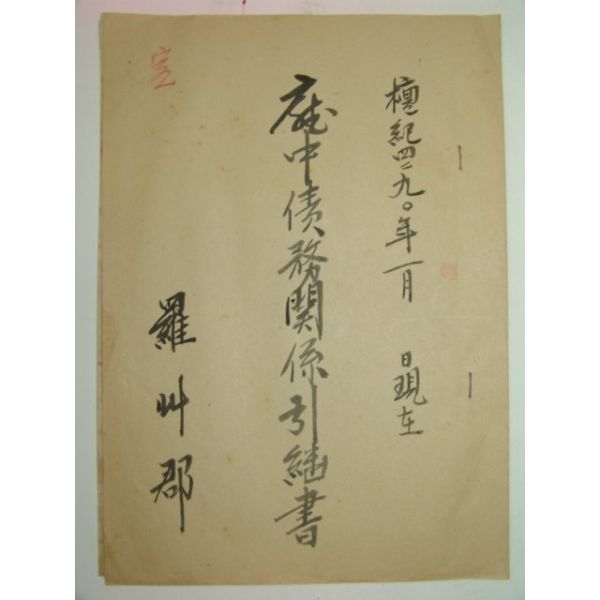 檀紀四二九〇年一月 日現在
中債務関係引継書
羅州郡